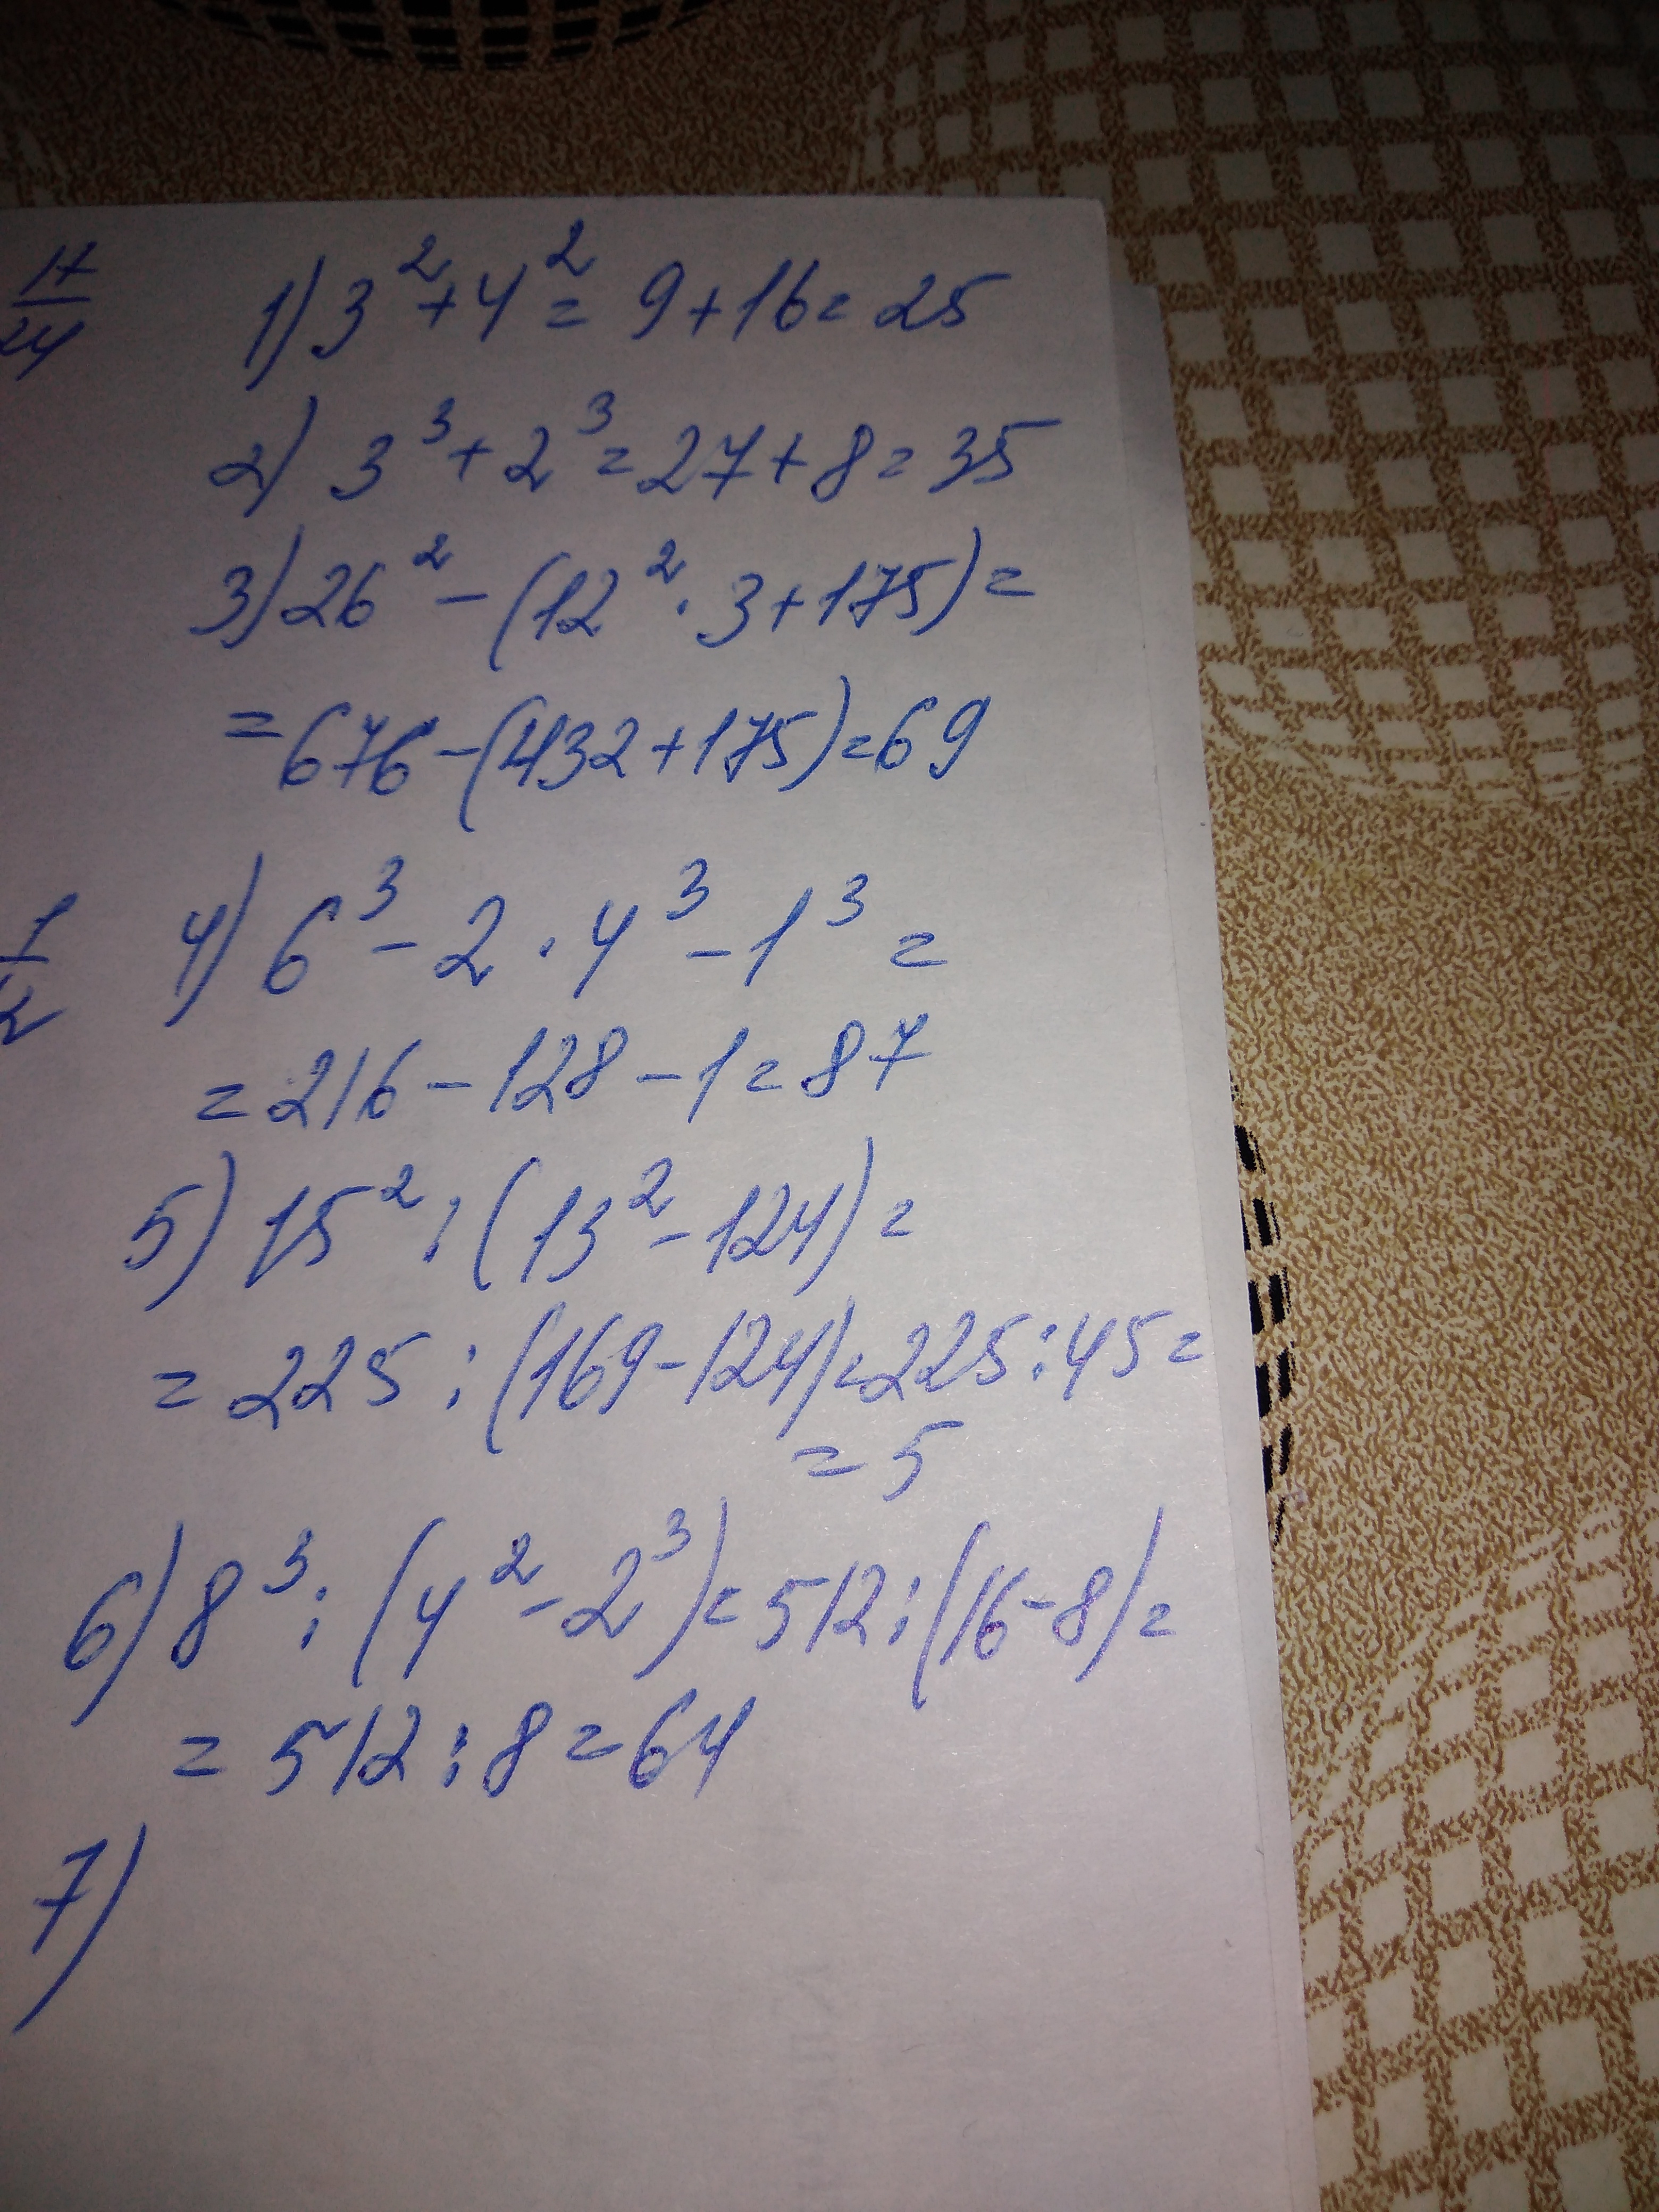 17/24
1) 3² + 4² = 9 + 16 = 25
2) 3³ + 2³ = 27 + 8 = 35
3) 26² - (12² · 3 + 175) =
= 676 - (432 + 175) = 69
4) 6³ - 2 · 4³ - 1³ =
= 216 - 128 - 1 = 87
5) 15² : (13² - 124) =
= 225 : (169 - 124) = 225 : 45 =
= 5
6) 8³ : (4² - 2³) = 512 : (16 - 8) =
= 512 : 8 = 64
7)